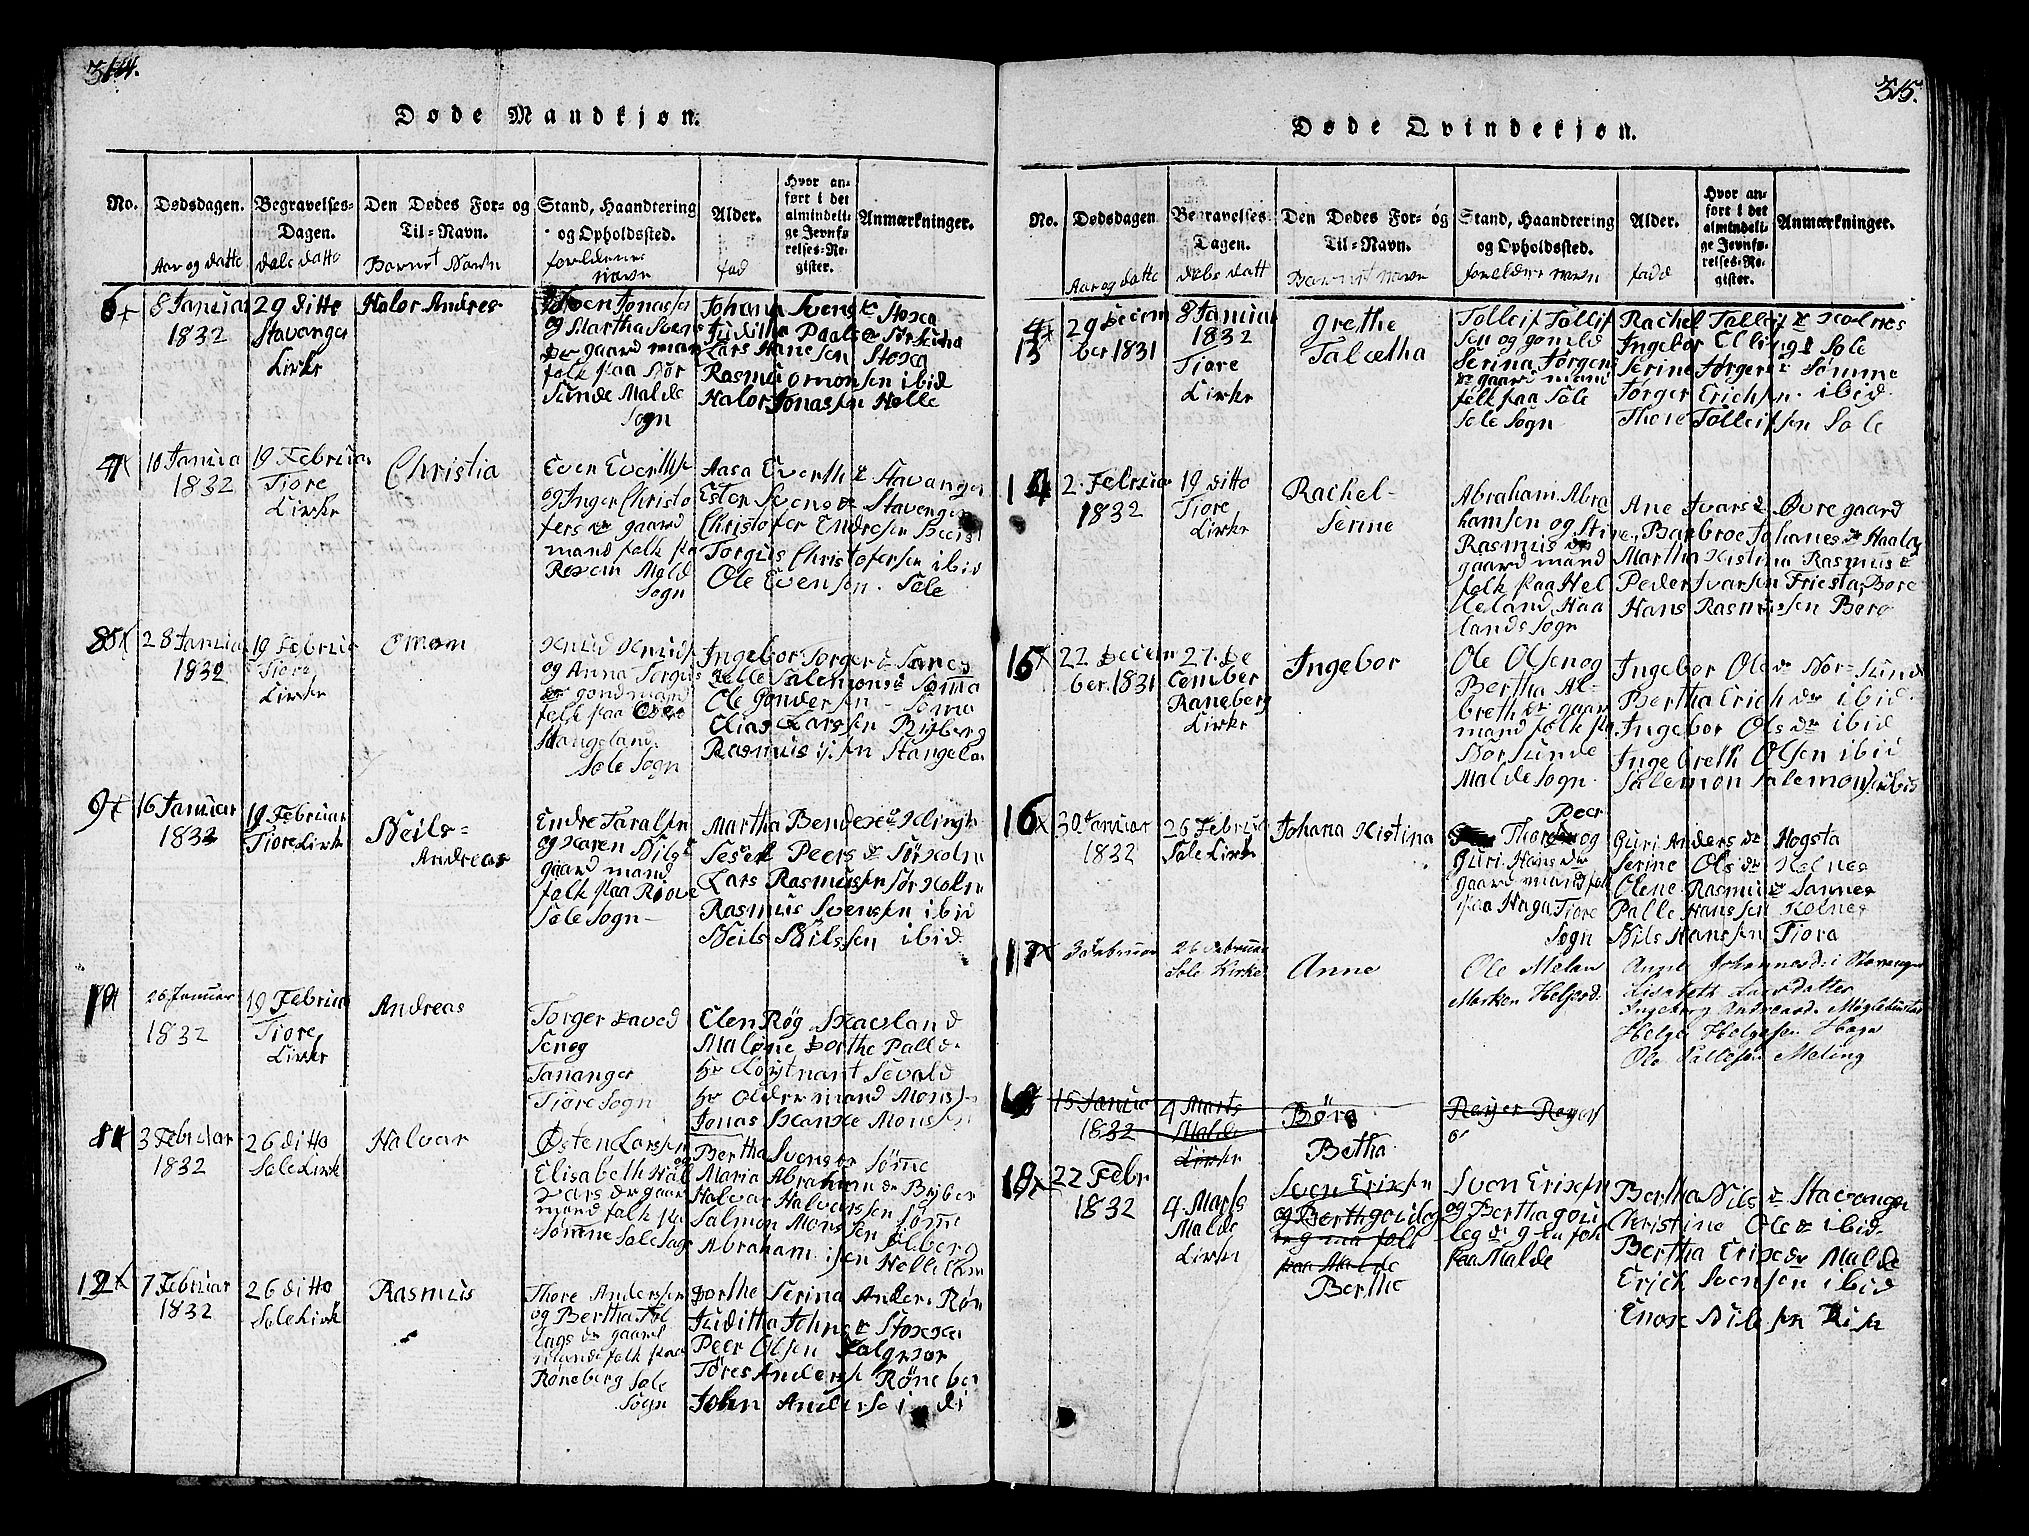 314.
Døde Mandkjøn.
No.
Dødsdagen.
Aar og datte
Begravelses-
Dagen.
dabs datto
Den Dødes For- og
Til-Navn.
Barnet Navn
Stand, Haandtering
og Opholdssted.
forældrenes
navn
Alder.
fad
Hvor an-
ført i det
almindeli-
ge Jevnfø-
relses-Re-
gister.
Anmærkninger.
6x
8 Januar
1832
29 ditto
Stavanger
Kirke
Halor Andres
Sven Jonassen
og Martha Svens
dr gaard man
folk paa Nør
Sunde Malde
Sogn
Johana Svens dr Stoxa
Juditha Paals dr Nørsunda
Lars Hansen Stoxa
Rasmus omonsen ibid
Halor Jonassen Helle
7x
10 Janua
1832
19 Februar
Tiore
Kirke
Christia
Even Everthse
og Inger Christo
fers dr gaard
mand folk pa
Rexem Mald
Sogn
Aasa Everth dr Stavanger
Ester Svens dr Stavenger
Christofer Endresen
Torgius Christofersen ibid
Ole Evensen. Sole
8x
28 Janua
1832
19 Februar
Tiore
Kirke
Omon
Knud Knuds
og Anna Torgius
dr gondmand
folk paa
Stangeland
Sole Sogn
Ingebor Torger dr Sanes
Helle Salemons dr Soma
Ole Gondersen - Soma
Elias Larssen Byberg
Rasmus Stangela
9x
16 Januar
1832
19 Februar
Tiore Kirke
Neils-
Andreas
Endre Taralsen
og Karen Nils dr
gaard mand
folk paa Røove
Sole Sogn -
Martha Bendixe dr
Seseel Peers dr Sørkoln
Lars Rasmusen Sør Koln
Rasmus Svensen ibid
Neils Nilssen ibid
10
26 Januar
1832
19 Februa
Tiore
Kirke
Andreas
Torger Daved
Sen og
Tananger
Tiore Sogn
Elen Røg Skavland
Malene Dorthe Pall dr
hr Løytnant Sevald
hr Oldermand Mons
Jonas Skanke Mons
11
3 Februar
1832
26 ditto
Sole Kirk
Halvar
Østen Larssen
og
Elisabeth Hal
vars dr gaar
mand folk pa
Sømme Sole Sogn
Bertha Svens dr Sømme
Maria Abraham dr Byber
Halvar Halvarssen Sømme
Salmon Monssen Sølberg
Abraham
12x
7 Februar
1832
26 ditto
Sole Kirk
Rasmus
Thore Andersen
og Bertha Tol
lags dr gaard
mande folk paa
Røneberg Sole
Sogn
Dorthe Serina Anders Røn
Juditha Johns dr Stoxxa
Peer Olsen
Tores Anderse Røneber
John Anderse
315.
Døde Qvindekjøn.
No.
Dødsdagen
Aar og datte
Begravelses-
Dagen.
dabs datt
Den Dødes For- og
Til-Navn.
Barnet navn
Stand, Haandtering
og Opholdssted.
forælder navn
Alder.
fadd
Hvor an-
ført i det
almindeli-
ge Jevnfø-
relses-Re-
gister.
Anmærkninger.
13
29 Decem
ber 1831
8 Januar
1832
Tiore
Kirke
Grethe
Talcetha
Tolleif Tolleif
Sen og gonild
Serina Jørgens
dr gaard man
folk paa Sole
Sole Sogn
Rachel Tolleif dr Kolnes
Ingebor Ellings Sole
Serine Jørgens dr Sömme
Jørger Erichsen. ibid
Thore Tolleifsen Sole
14
2. Februar
1832
19 ditto
Tiore
Kirke
Rachel-
Serine
Abraham Abra
hamsen og Stine
Rasmus dr
gaard mand
folk paa Hel
leland Haa
lands Sogn
Ane Ivars dr Øvregaard
Barbroe Johanes dr Haaland
Martha Kistina Rasmus dr
Peder Ivarsen Friesta Bore
Hans Rasmusen Bore
15x
22 Decem
ber. 1831
27. De
cember
Raneberg
Kirke
Ingebor
Ole Olsen og
Bertha Al-
breth dr gaar
mand folk pa
Nørsunde
Malde Sogn
Ingebor Ole dr Nør-Sund
Bertha Erich dr ibid
Ingebor Ols dr ibid
Ingebreth Olsen ibid
Salemon Salemonsen ibid
16x
30 Januar
1832
26 Februa
Sole Kirke
Johana Kistina
Peer
Thorsen og
Guri Hans dr
gaard mand fol
paa Haga Tiore
Sogn
Guri Anders dr Hogsta
Serine Ols dr Kolnes
Olene Rasmus dr Sannes
Palle Hanssen Kolnes
Nils Hanssen Tiora
17x
3 Februar
26 Februar
Sole Kirke
Anne
Ole Melan
Marken Heljesd.
Anne Johannesd: i Stavanger
Lisabeth Larsdatter
Ingeborg Andreasd. Møglebustad
Helge Helgesen Haga
Ole Pallesen Meling
15 Janua
1832
4 Marts
Malde
Kirke
Börg
Betha
Reyer Reyers
18x
22 Febr
1832
4 Marts
Malde
Kirke
Sven Erixsen
og Bertha
paa Malde
Berthe
Sven Erixsen
og Bertha goui
leg dr g en folk
paa Malde
Bertha Nils dr Stavanger
Christine Ole dr ibid-
Bertha Erixe dr Malde
Erick Svensen ibid
Enox Nilssen